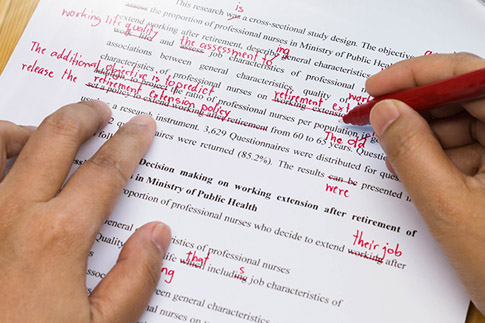 is
This research was a cross-sectional study design. The objective
working life quality
the proportion of professional nurses in Ministry of Public Health
extend working after retirement, describe ing general characteristics
the assessment to
and assess job characteristics of professional
The additional objective is to predict
associations between general characteristics, quality of work
release the retirement extension policy
of professional nurses on working extension retirement ext
project the ratio of professional nurses per population
set a project to extend working after retirement from 60 to 65 years. The old
a research instrument. 3,629 Questionnaires were distributed for
questionnaires were returned (85.2%). The results can be presented
were
Decision making on working extension after retirement of
in Ministry of Public Health
proportion of professional nurses who decide to extend working after
their job
characteristics of professional nurses
Quality life which including job characteristics of
that s
ing
between general characteristics of
professional nurses on